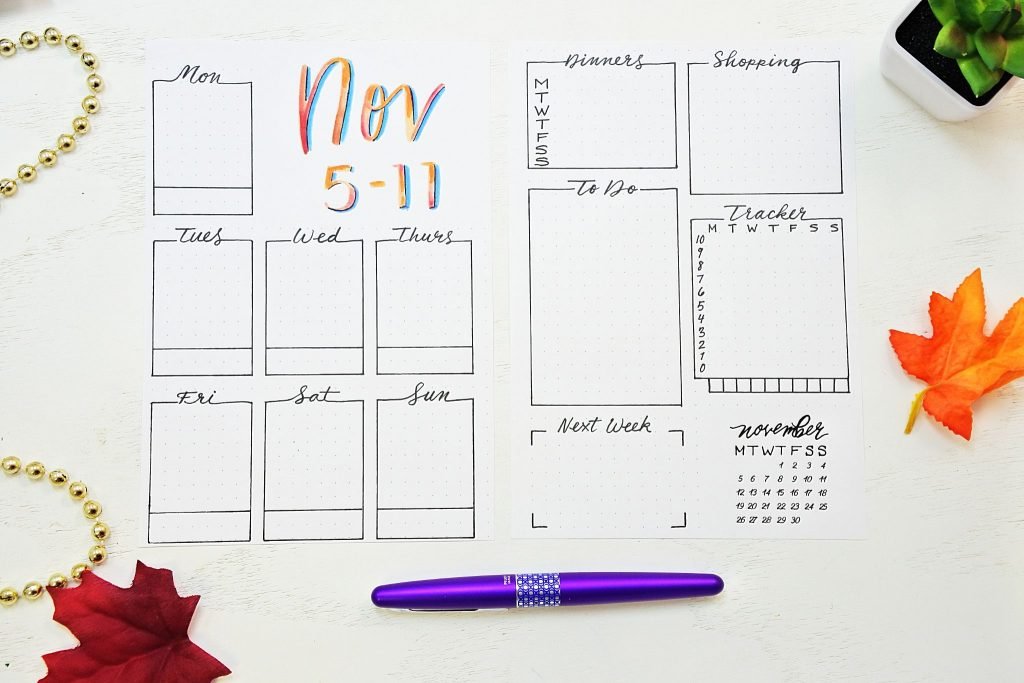 Mon
Nov
5-11
Tues
Wed
Thurs
Fri
Sat
Sun
Dinners
M
T
W
T
F
S
S
Shopping
To Do
Tracker
M T W T F S S
10
9
8
7
6
5
4
3
2
1
0
Next Week
november
M T W T F S S
1 2 3 4
5 6 7 8 9 10 11
12 13 14 15 16 17 18
19 20 21 22 23 24 25
26 27 28 29 30